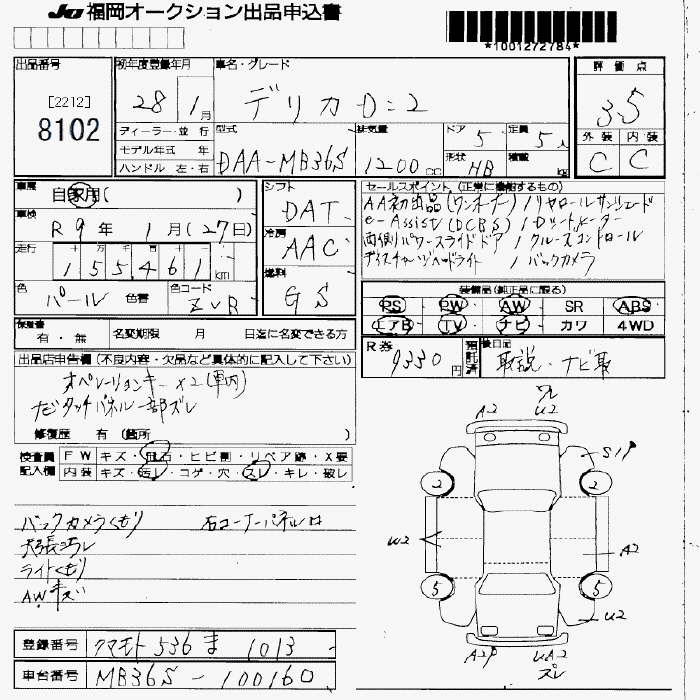 JU 福岡オークション出品申込書
*1001272784*
出品番号 初年度登録年月 車名・グレード 評価点
[2212]
8102
28 1月 デリカD:2 3.5
ディーラー・並行 型式 排気量 ドア 5 定員 5人 外装 内装
モデル年式 年
ハンドル 左・右 DAA-MB36S 1200cc 形状 HB 積載 kg C C
車歴 自家用( )
車検 R9年 1月(27日)
走行 十万千百十一
155,461km
色 パール 色替 色コード ZVR
シフト DAT
冷房 AAC
燃料 GS
セールスポイント(正常に機能するもの)
AA初出品(ワンオーナー)/リヤロールサンシェード
e-Assist(DCBS)/Dットメーター
両側パワースライドドア/クルーズコントロール
ディスチャージヘッドライト/バックカメラ
装備品(純正品に限る)
PS・PW・AW・SR・ABS
エアB・TV・ナビ・カワ・4WD
保証書 有・無 名変期限 月 日迄に名変できる方
R券 9330円 預託済 後日品 取説・ナビ取
出品店申告欄(不良内容・欠品など具体的に記入して下さい)
オペレーションキーx2(車内)
ナビタッチパネル一部ズレ
修復歴 有(箇所 )
検査員 FW キズ・飛石・ヒビ割・リペア跡・X要
記入欄 内装 キズ・汚レ・コゲ・穴・スレ・キレ・破レ
バックカメラくもり 右コーナーパネル
天張汚レ
ライトくもり
AWキズ
登録番号 クマモト536ま1013
車台番号 MB36S-100160
A2 U2
S1P
2 2
W2 A2
5 5
U2
A2P UA2
スレ